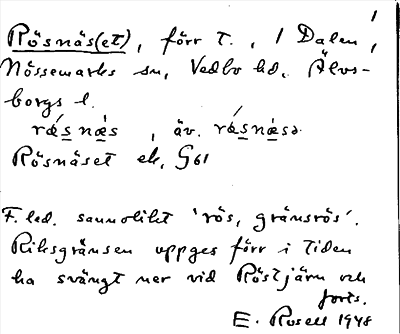 1
Rösnäs(et), förr t., i Dalen,
Nössemarks sn, Vedbo hd, Älvs-
borgs l.
rǿs nǽs, äv. rǿsnæsə
Rösnäset ek, G61
F. led. sannolikt 'rös, gränsrös'.
Riksgränsen uppges förr i tiden
ha svängt ner vid Röstjärn och
forts.
E. Rosell 1948